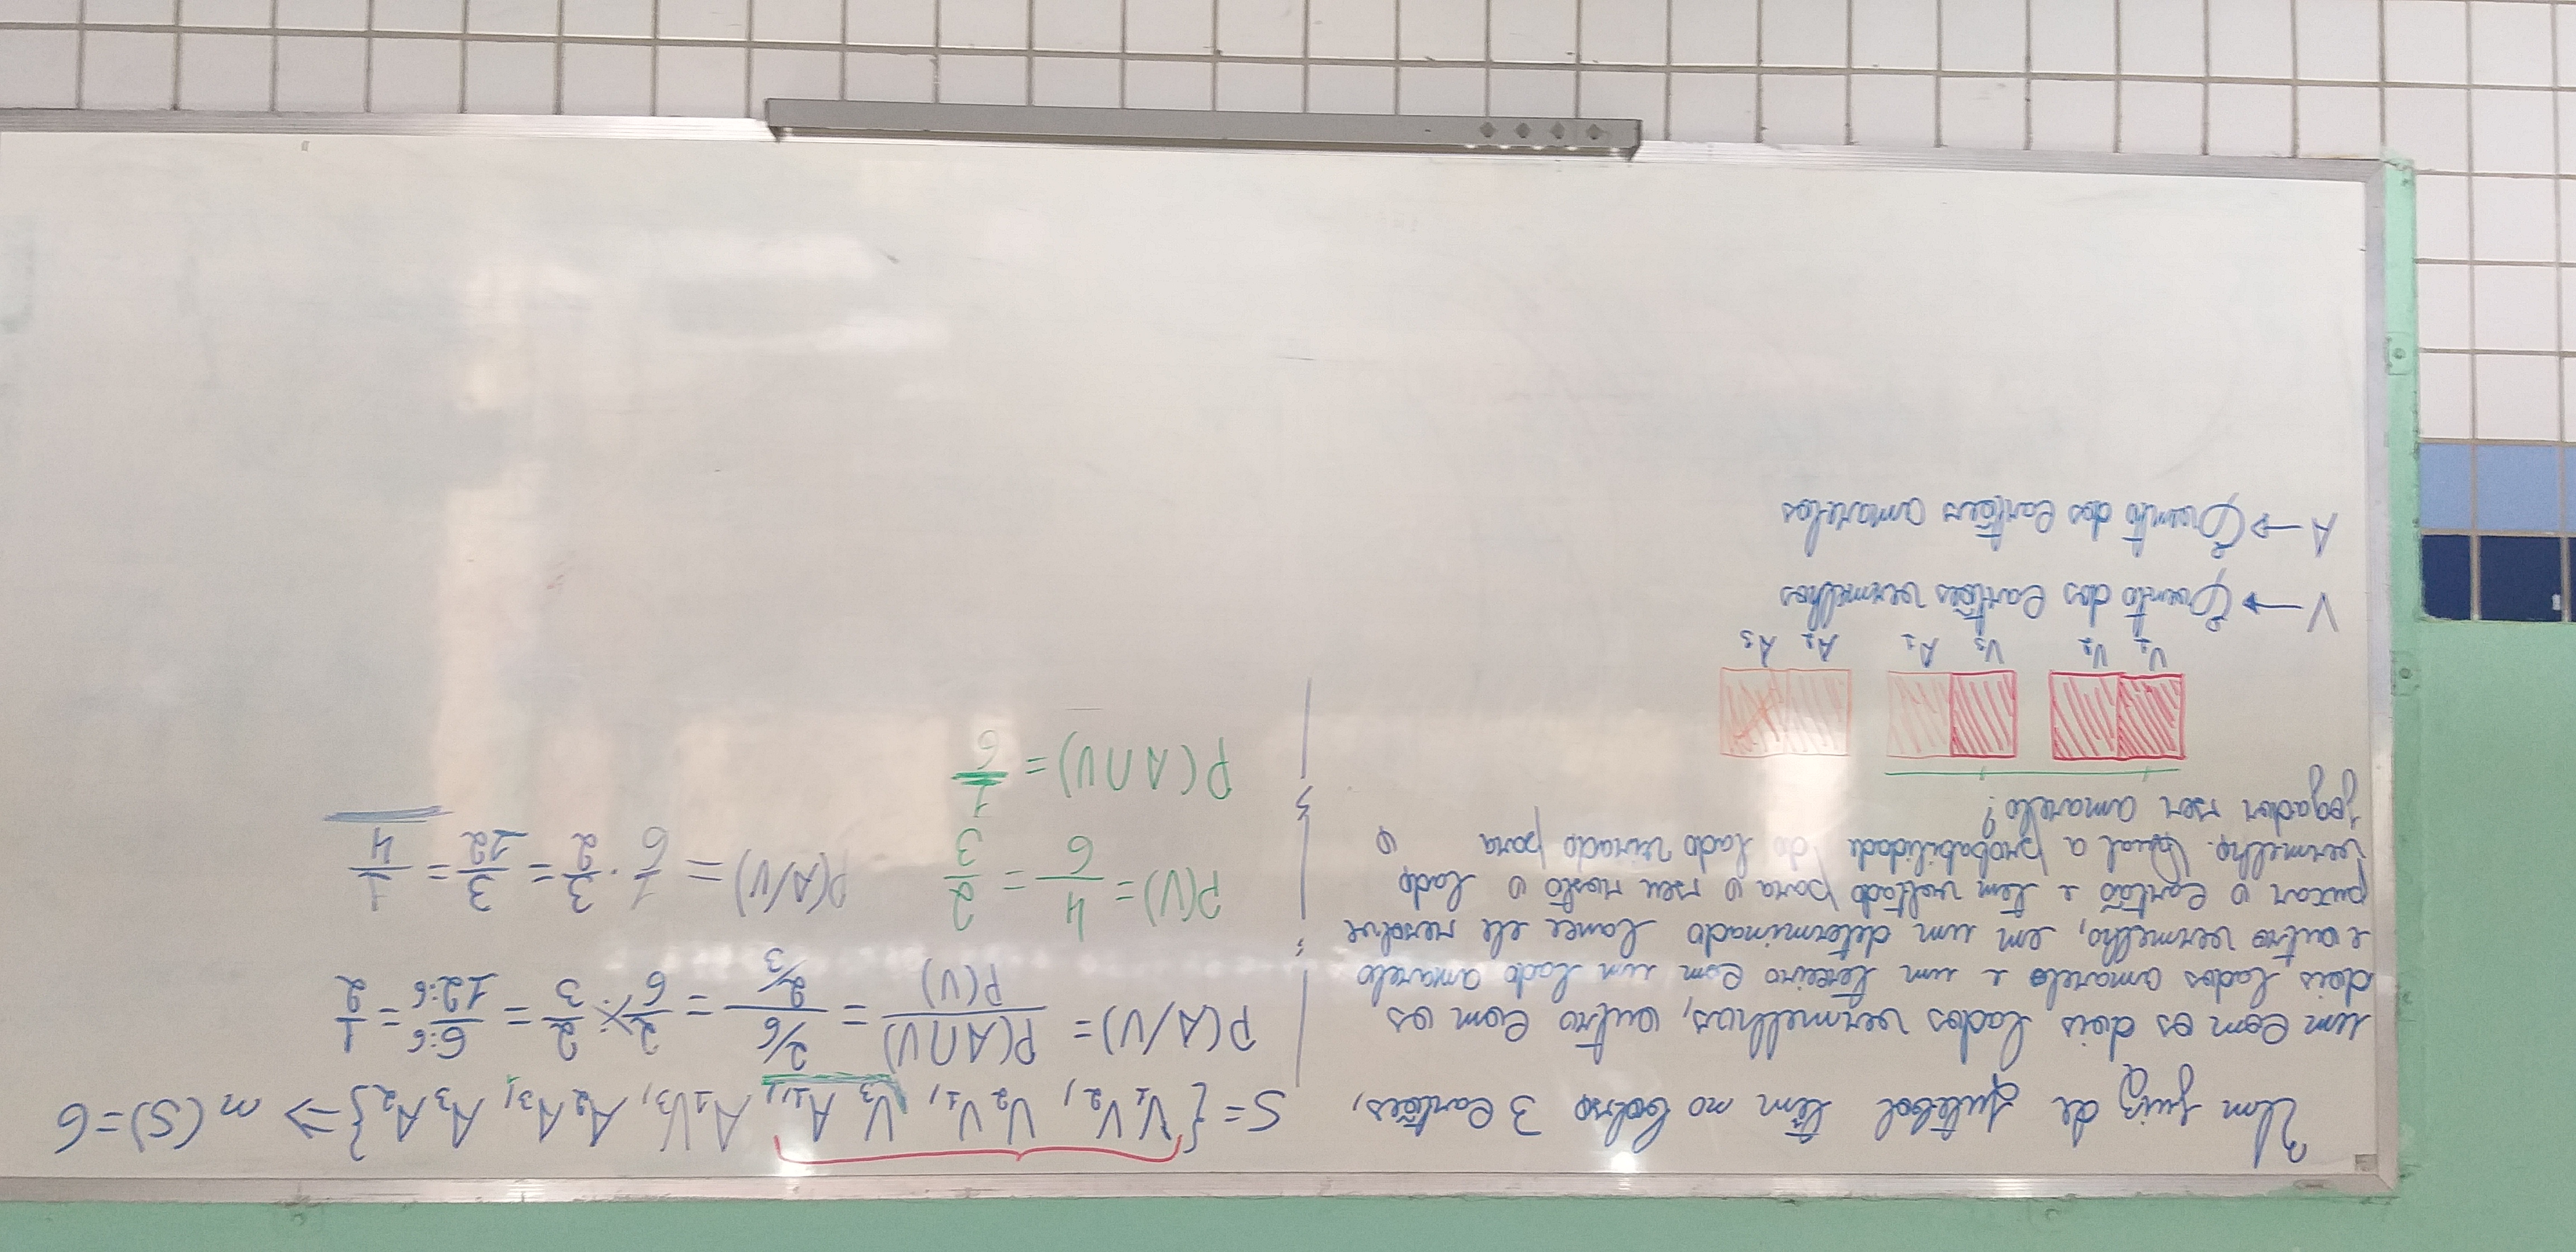 Um juiz de futebol têm no bolso 3 cartões,
um com os dois lados vermelhos, outro com os
dois lados amarelo e um terceiro com un lado amarelo
e outro vermelho, em um determinado lance ele resolve
puxar o cartão e tem voltado para o seu rosto o lado
vermelho. Qual a probabilidade do lado virado para o
jogador ser amarelo?
V₁ V₂ V₃ A₁ A₂ A₃
V → Evento dos cartões vermelhos
A → Evento dos cartões amarelos
S = {V₁V₂, V₂V₁, V₃ A₁, A₁V₃, A₂A₃, A₃A₂} ⇒ n(S)=6
P(A/V) = P(A∩V)/P(V) = (2/6)/(2/3) = 2/6 × 2/3 = 6:6/12:6 = 1/2
P(V) = 4/6 = 2/3
P(A/V) = 1/6 . 3/2 = 3/12 = 1/4
P(A∩V) = 1/6